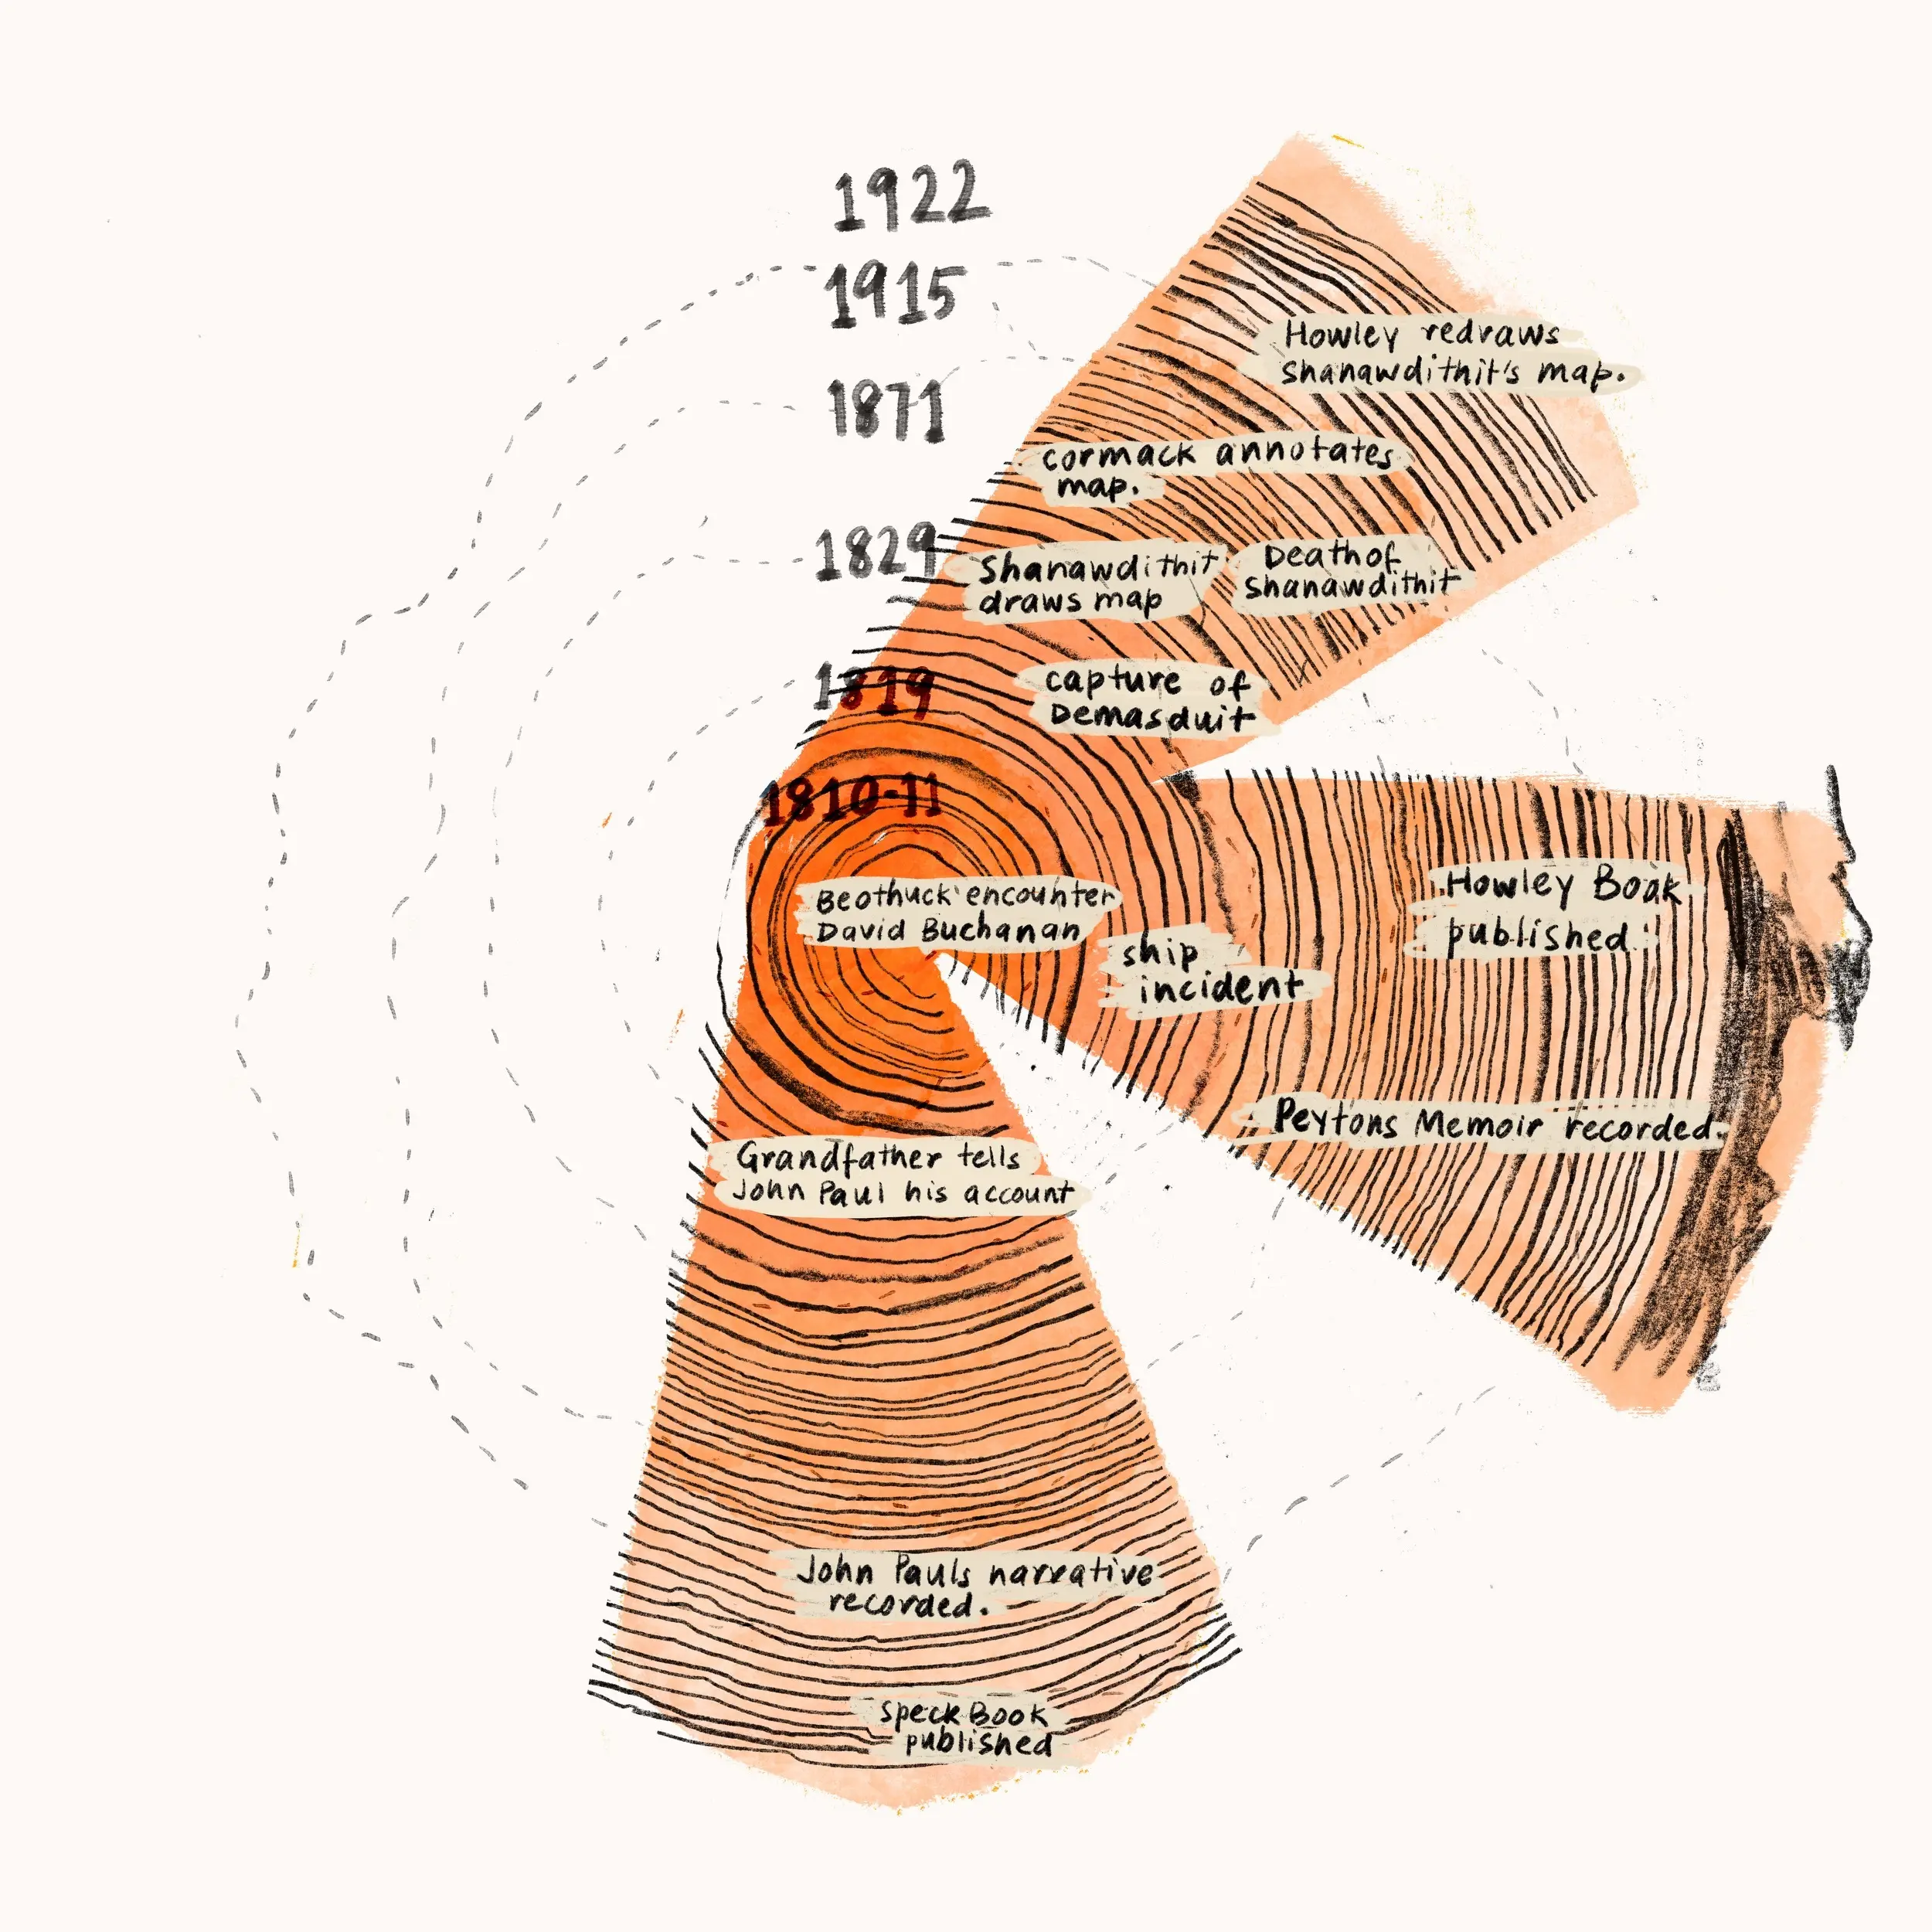 1922
1915
1871
1829
1819
1810-11
Howley redraws
Shanawdithit's map.
Cormack annotates
map.
Shanawdithit
draws map
Death of
Shanawdithit
capture of
Demasduit
Beothuck encounter
David Buchanan
ship
incident
Howley Book
published
Peytons Memoir recorded.
Grandfather tells
John Paul his account
John Pauls narrative
recorded.
Speck Book
published